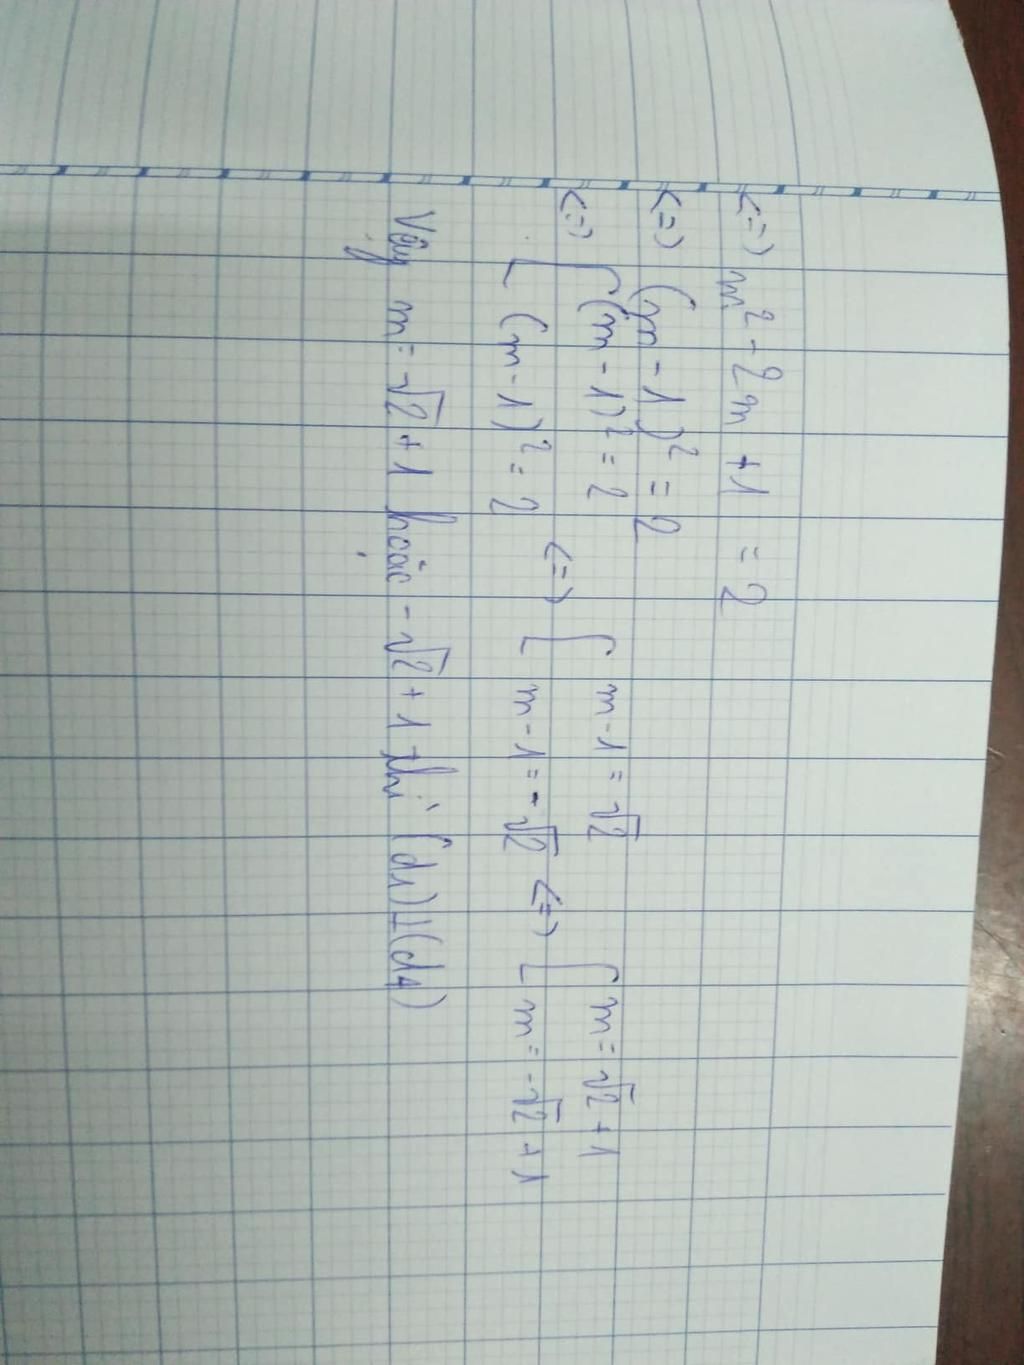 <=> m² - 2m + 1 = 2
<=> (m - 1)² = 2
<=> [ (m - 1)² = 2 <=> [ m - 1 = √2 <=> [ m = √2 + 1
(m - 1)² = 2 m - 1 = -√2 m = -√2 + 1
Vậy m = √2 + 1 hoặc -√2 + 1 thì (d1) ⊥ (d4)